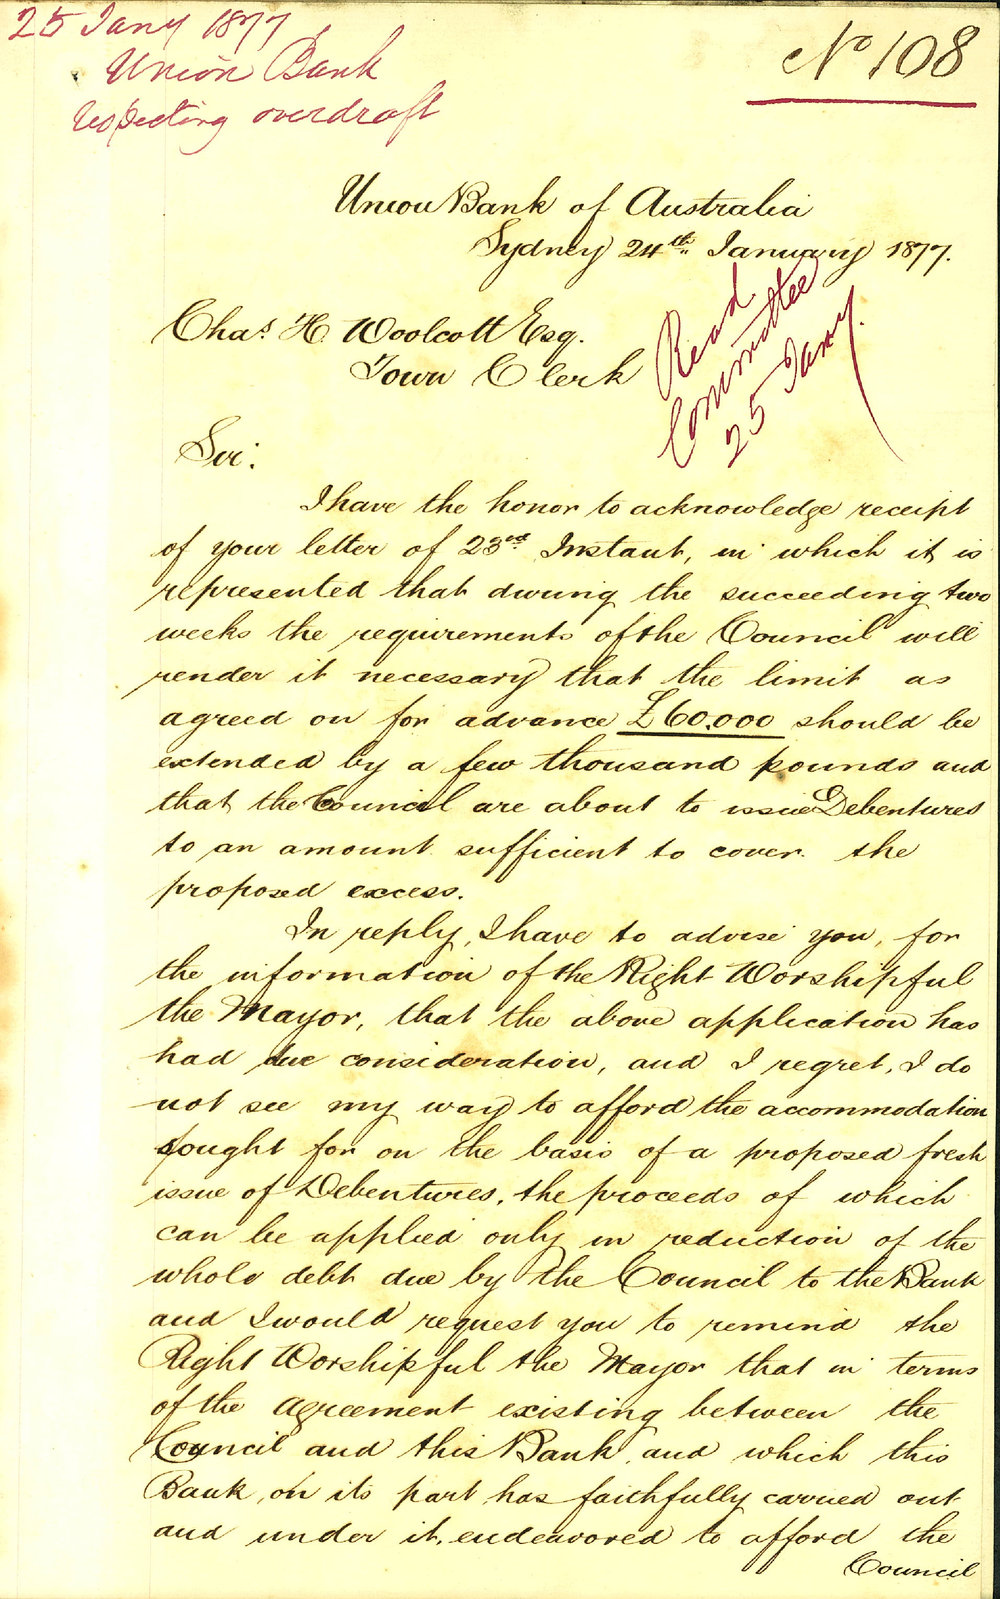 25 Jany 1877
Union Bank
respecting overdraft
No 108
Union Bank of Australia
Sydney 24th January 1877.
Read
Committee
25 Jany.
Chas. H. Woolcott Esq.
Town Clerk
Sir:
I have the honor to acknowledge receipt
of your letter of 23rd Instant, in which it is
represented that during the succeeding two
weeks the requirements of the Council will
render it necessary that the limit as
agreed on for advance £60.000 should be
extended by a few thousand pounds and
that the Council are about to issue Debentures
to an amount sufficient to cover the
proposed excess.
In reply, I have to advise you, for
the information of the Right Worshipful
the Mayor, that the above application has
had due consideration, and I regret, I do
not see my way to afford the accommodation
sought for on the basis of a proposed fresh
issue of Debentures, the proceeds of which
can be applied only in reduction of the
whole debt due by the Council to the Bank
and I would request you to remind the
Right Worshipful the Mayor that in terms
of the Agreement existing between the
Council and this Bank, and which this
Bank, on its part has faithfully carried out
and under it, endeavored to afford the
Council